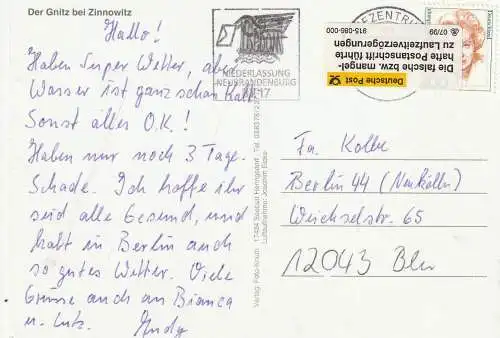 Der Gnitz bei Zinnowitz
Hallo!
Haben Super Wetter, aber
Wasser ist ganz schön kalt.
Sonst alles O.K.!
Haben nur noch 3 Tage.
Schade. Ich hoffe ihr
seid alle Gesund, und
habt in Berlin auch
so gutes Wetter. Viele
Grüsse auch an Bianca
u. Lutz. Andy
NIEDERLASSUNG
NEUBRANDENBURG
17
Verlag: Foto-forum 17494 Seebad Heringsdorf
Luftaufnahme: Joachim
EZENTR
Deutsche Post
Die falsche bzw. mangel-
hafte Postanschrift führte
zu Laufzeitverzögerungen
07/99
915-085-000
Fa. Kolbe
Berlin 44 (Neukölln)
Weichselstr. 65
12043 Bln